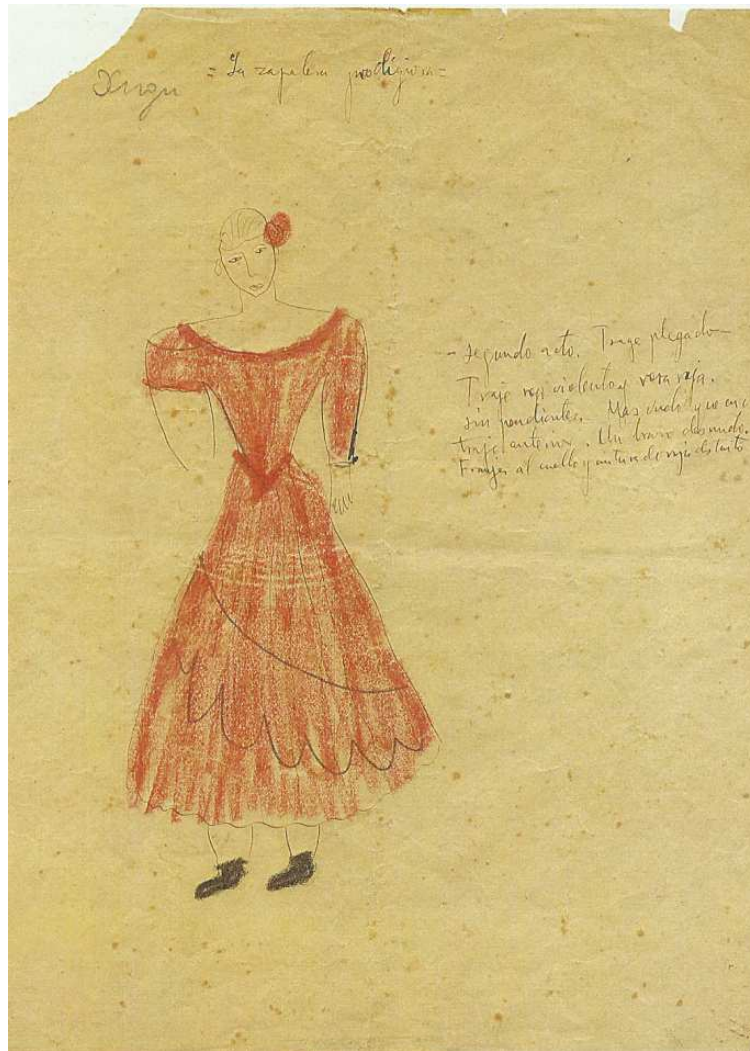 Xirgu
= La zapatera prodigiosa =
- Segundo acto. Traje plegado
Traje rojo violento y rosa roja.
Sin pendientes. Mas vuelo que en el
traje anterior. Un brazo desnudo.
Franjas al cuello y cintura de rojo distinto